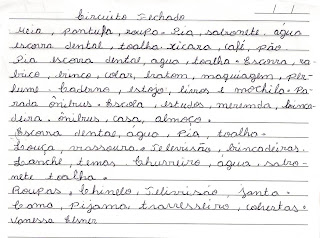 Circuito Fechado
Meia, pantufa, roupa. Pia, sabonete, água
escova dental, toalha. Xícara, café, pão
Pia escova dental, água, toalha. Escova, ra-
bico, brinco, colar, batom, maquiagem, per-
fume. Caderno, estojo, livros e mochila. Pa-
rada ônibus. Escola, estudos, merenda, brinca-
deira. ônibus, casa, almoço.
Escova dental, agua, Pia, toalha.
Louça, vassoura. Televisão, brincadeiras.
Lanche, temas Chuveiro, água, sabo-
nete toalha.
Roupas, Chinelo, Televisão, janta.
Cama, Pijama travesseiro, cobertas.
Vanessa Elsner